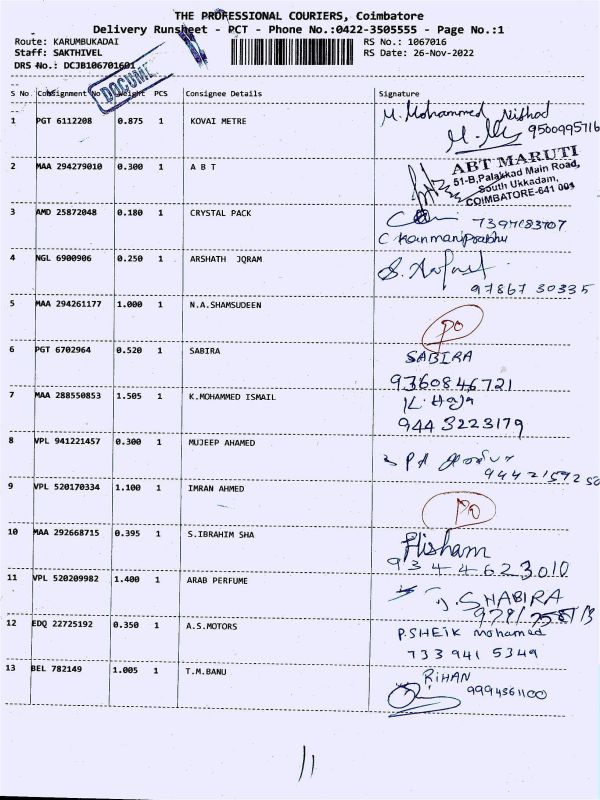 THE PROFESSIONAL COURIERS, Coimbatore
Delivery Runsheet - PCT - Phone No.:0422-3505555 - Page No.:1
Route: KARUMBUKADAI RS No.: 1067016
Staff: SAKTHIVEL RS Date: 26-Nov-2022
DRS No.: DCJB106701601
DOCUME
S No. Consignment No Weight PCS Consignee Details Signature
1 PGT 6112208 0.875 1 KOVAI METRE M. Mohammed Nishad
9500995716
2 MAA 294279010 0.300 1 A B T ABT MARUTI
51-B, Palakkad Main Road,
South Ukkadam,
COIMBATORE-641 001
3 AMD 25872048 0.180 1 CRYSTAL PACK
C Kanmaniprabhu
4 NGL 6900906 0.250 1 ARSHATH JQRAM
97867 30335
5 MAA 294261177 1.000 1 N.A.SHAMSUDEEN PO
6 PGT 6702964 0.520 1 SABIRA SABIRA
9360846721
7 MAA 288550853 1.505 1 K.MOHAMMED ISMAIL K. Haja
9443223179
8 VPL 941221457 0.300 1 MUJEEP AHAMED
9442159250
9 VPL 520170334 1.100 1 IMRAN AHMED PO
10 MAA 292668715 0.395 1 S.IBRAHIM SHA Hisham
9344623010
11 VPL 520209982 1.400 1 ARAB PERFUME J.SHABIRA
12 EDQ 22725192 0.350 1 A.S.MOTORS P.SHEIK mohamed
733 941 5349
13 BEL 782149 1.005 1 T.M.BANU RiHAN
9994361100
11